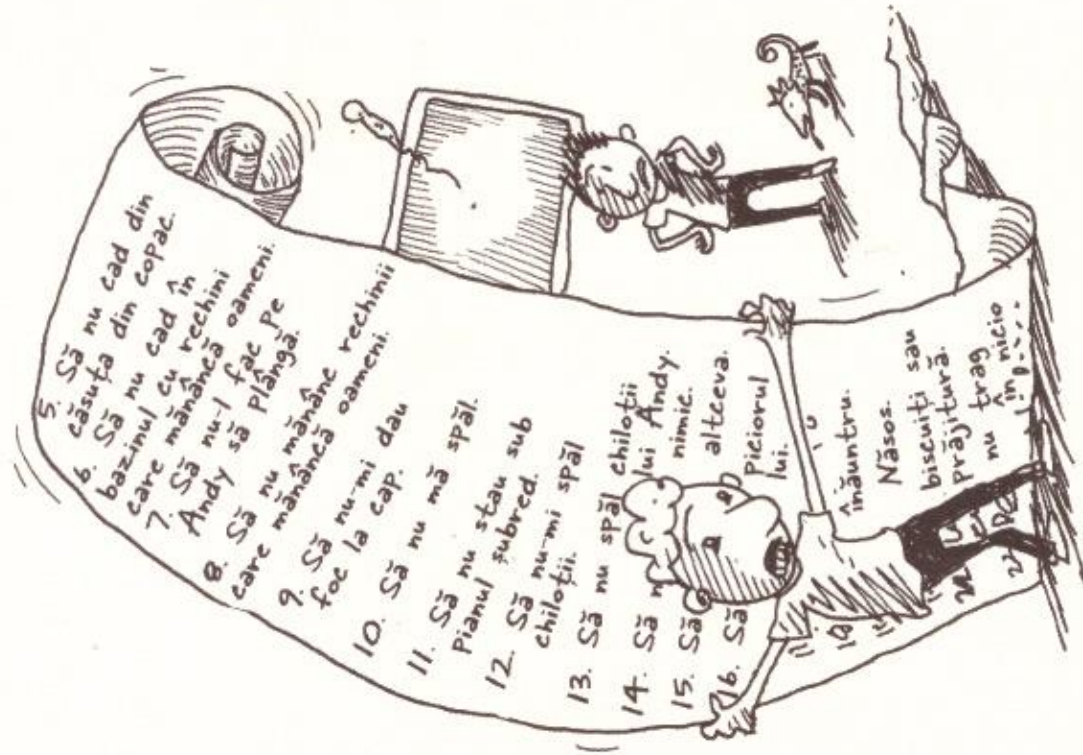 5. Să nu cad din
căsuța din copac.
6. Să nu cad în
bazinul cu rechini
care mănâncă oameni.
7. Să nu-l fac pe
Andy să plângă.
8. Să nu mănânc rechinii
care mănâncă oameni.
9. Să nu-mi dau
foc la cap.
10. Să nu mă spăl.
11. Să nu stau sub
pianul șubred.
12. Să nu-mi spăl
chiloții.
13. Să nu spăl chiloții
lui Andy.
14. Să nimic.
15. Să altceva.
16. Să piciorul
lui.
înăuntru.
Năsos.
biscuiți sau
prăjitură.
nu trag
în nicio